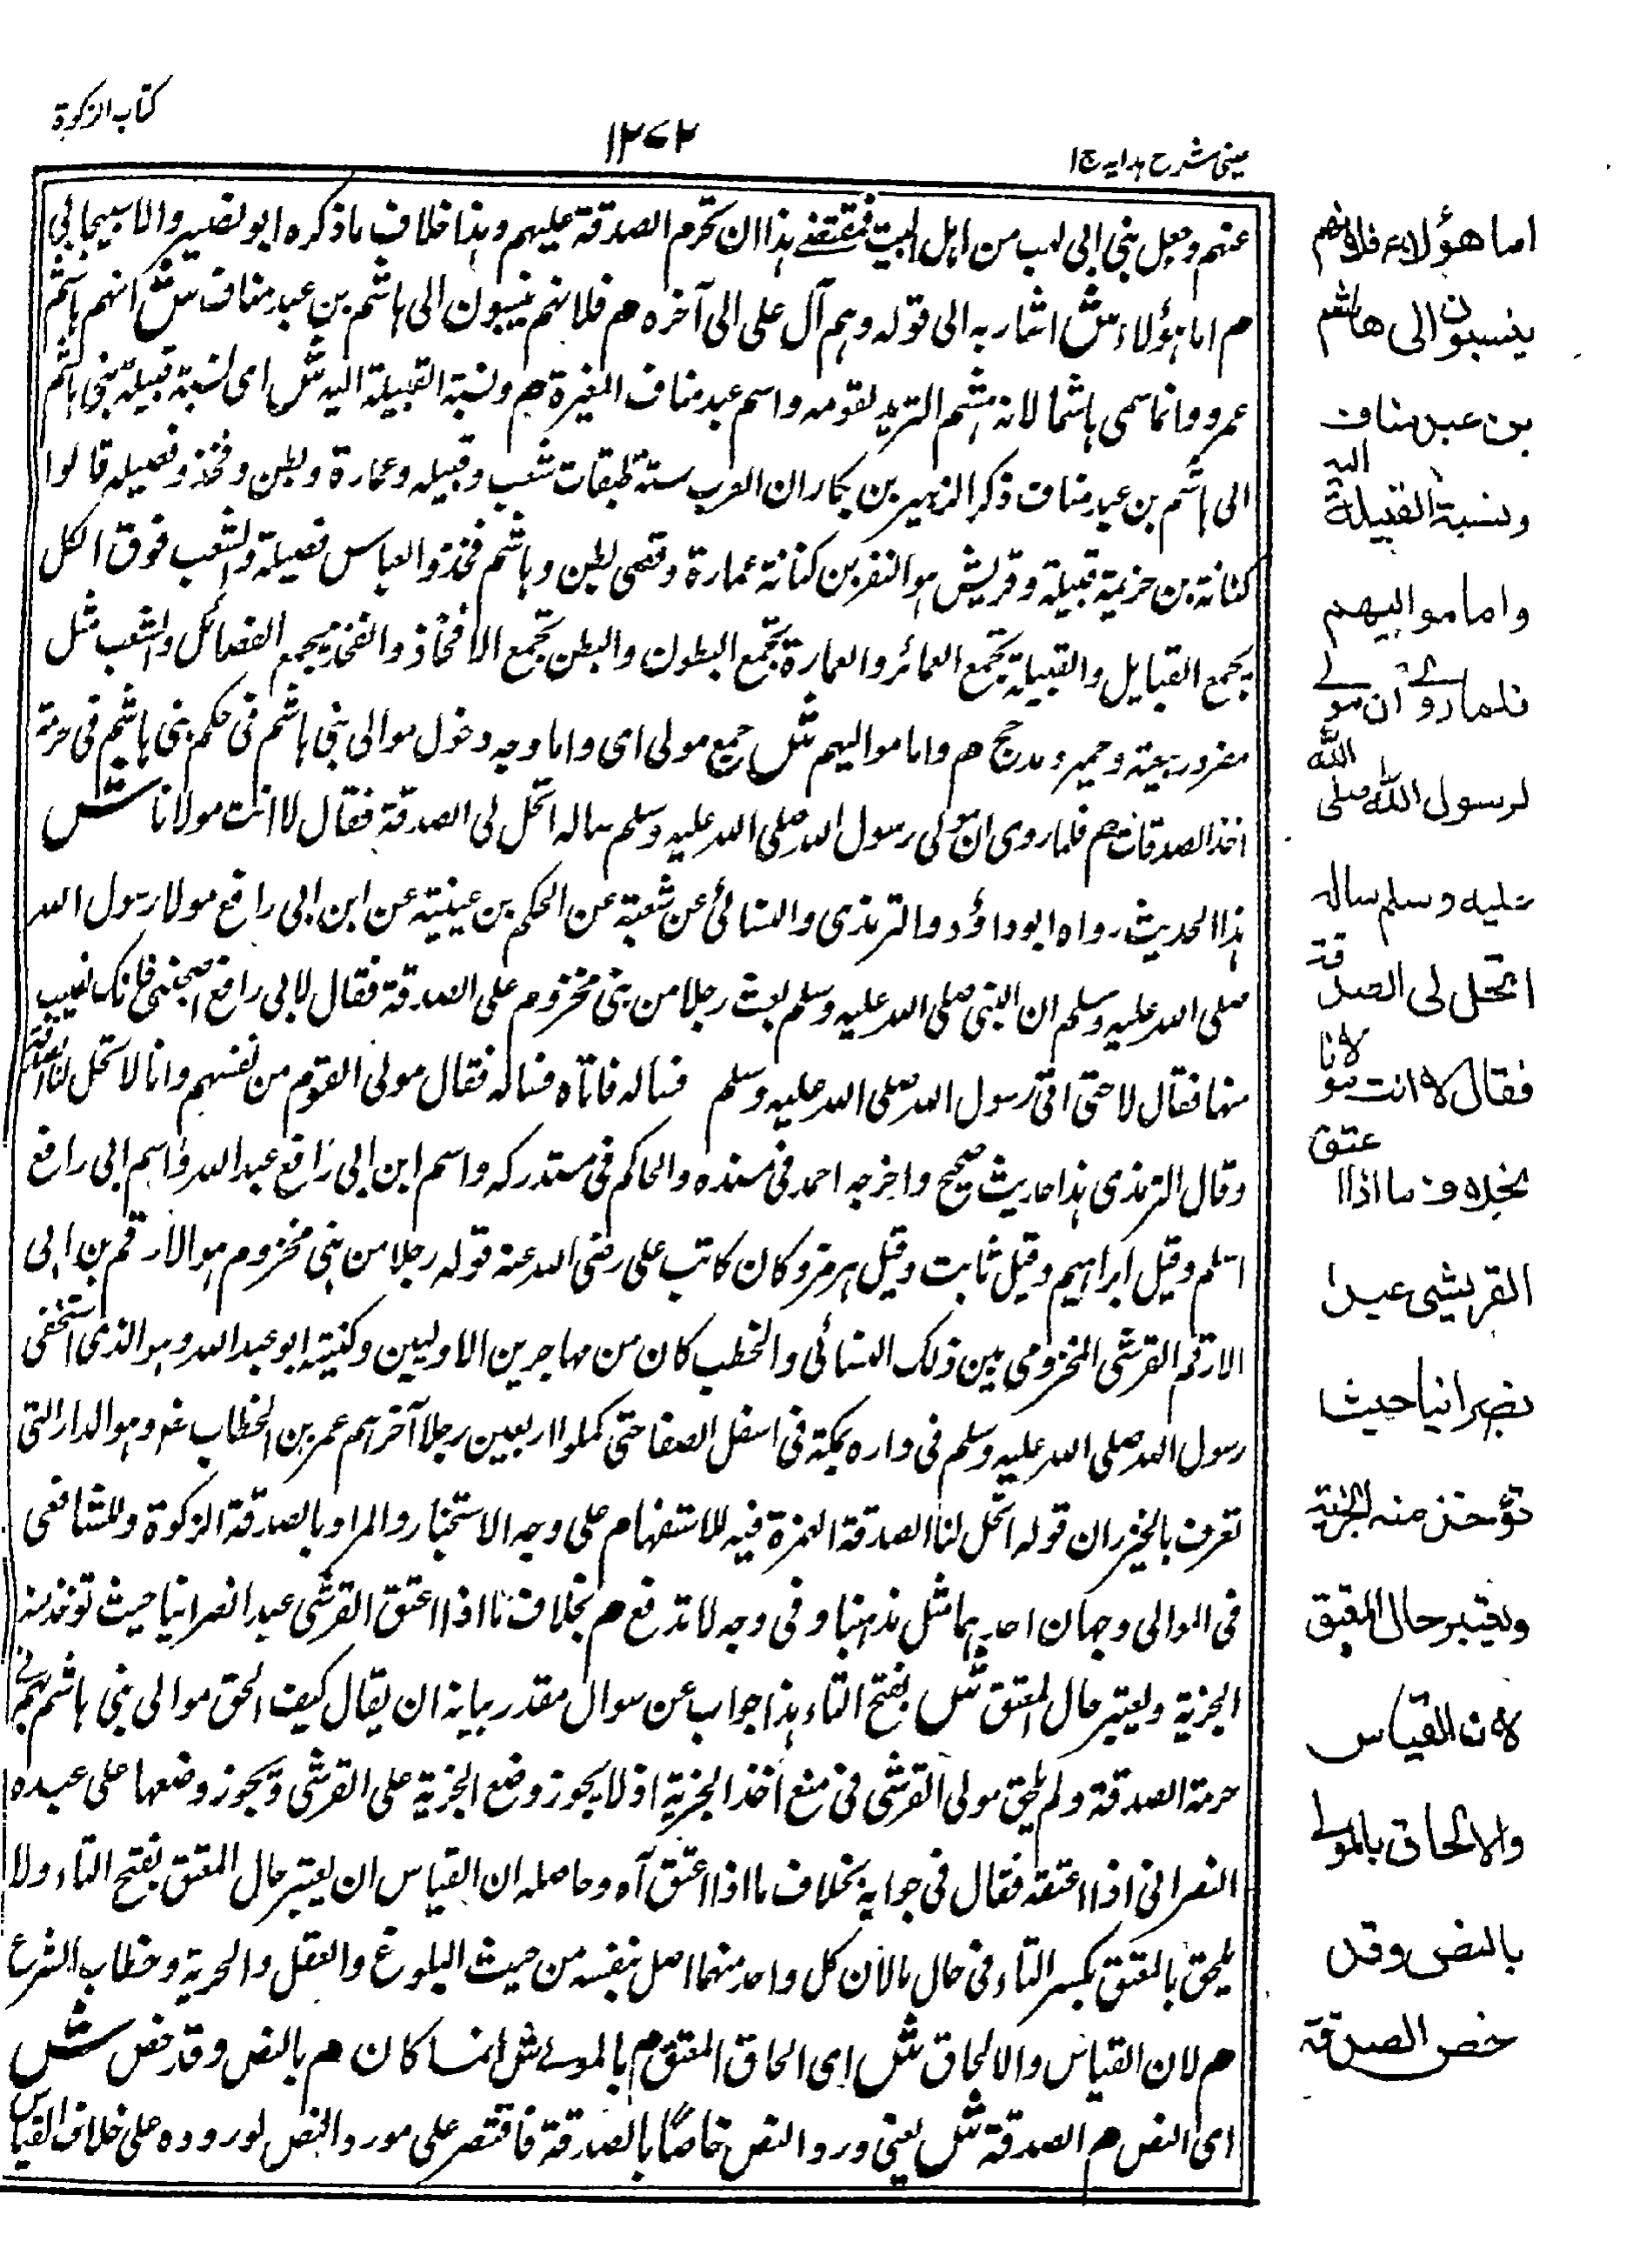 كتاب الزكوة
١٢٧٢
عينى شرح هدايه ج ١
عنهم وجعل بنى ابى لهب من اهل البيت فمقتضى هذا ان تحرم الصدقة عليهم وهذا خلاف ما ذكره ابو نصير والاسبيجابى
م اما هؤلاء ش اشار به الى قوله وهم آل على الى آخره م فلانهم ينسبون الى هاشم بن عبد مناف ش انهم هاشم
عمرو وانما سمى هاشما لانه هشم الثريد لقومه واسم عبد مناف المغيرة م ونسبة القبيلة اليه ش اى نسبة قبيلة بنى هاشم
الى هاشم بن عبد مناف ذكر الزبير بن بكار ان العرب ستة طبقات شعب وقبيله وعمارة وبطن وفخذ وفصيله قالوا
كنانة بن خزيمة قبيلة وقريش هو النضر بن كنانة عمارة وقصى بطن وهاشم فخذ والعباس فصيلة والشعب فوق الكل
يجمع القبايل والقبيلة تجمع العمائر والعمارة تجمع البطون والبطن تجمع الافخاذ والفخذ يجمع الفصائل والشعب مثل
مضر وربيعة وحمير ومدحج م واما مواليهم ش جمع مولى اى واما وجه دخول موالى بنى هاشم فى حكم بنى هاشم فى حرمة
اخذ الصدقات م فلما روى ان مولى رسول الله صلى الله عليه وسلم ساله اتحل لى الصدقة فقال لا انت مولانا ش
هذا الحديث رواه ابو داؤد والترمذى والنسائى عن شعبة عن الحكم بن عيينة عن ابن ابى رافع مولا رسول الله
صلى الله عليه وسلم ان النبى صلى الله عليه وسلم بعث رجلا من بنى مخزوم على الصدقة فقال لابى رافع اصحبنى فانك نصيب
منها فقال لا حتى اتى رسول الله صلى الله عليه وسلم فساله فاتاه فساله فقال مولى القوم من نفسهم وانا لا تحل لنا الصدقة
وقال الترمذى هذا حديث صحيح واخرجه احمد فى مسنده والحاكم فى مستدركه واسم ابن ابى رافع عبد الله واسم ابى رافع
اسلم وقيل ابراهيم وقيل ثابت وقيل هرمز وكان كاتب على رضى الله عنه قوله رجلا من بنى مخزوم هو الارقم بن ابى
الارقم القرشى المخزومى بين ذلك النسائى والخطب كان من مهاجرين الاوليين وكنيته ابو عبد الله وهو الذى استخفى
رسول الله صلى الله عليه وسلم فى داره بمكة فى اسفل الصفا حتى كملوا اربعين رجلا آخرهم عمر بن الخطاب وهو الدار التى
تعرف بالخيزران قوله اتحل لنا الصدقة الهمزة فيه للاستفهام على وجه الاستخبار والمراد بالصدقة الزكوة وللشافعى
فى الموالى وجهان احدهما مثل مذهبنا وفى وجه لا تدفع م بخلاف ما اذا اعتق القرشى عبدا نصرانيا حيث توخذ منه
الجزية ويعتبر حال المعتق ش بفتح التاء هذا جواب عن سوال مقدر بيانه ان يقال كيف الحق موالى بنى هاشم بهم فى
حرمة الصدقة ولم يلحق مولى القرشى فى منع اخذ الجزية اذ لا يجوز وضع الجزية على القرشى ويجوز وضعها على عبده
النصرانى اذا اعتقه فقال فى جوابه بخلاف ما اذا اعتق آه وحاصله ان القياس ان يعتبر حال المعتق بفتح التاء ولا
يلحق بالمعتق بكسر التاء فى حال ما لان كل واحد منهما اصل بنفسه من حيث البلوغ والعقل والحرية وخطاب الشرع
م لان القياس والالحاق ش اى الحاق المعتق م بالمولے ش انما كان م بالنص وقد خص ش
اى النص م الصدقة ش يعنى ورد النص خاصًا بالصدقة فاقتصر على مورد النص لوروده على خلاف القياس
اما هؤلاء فلانهم
ينسبون الى هاشم
بن عبد مناف
ونسبة القبيلة اليه
واما مواليهم
فلما روى ان مولے
لرسول الله صلى الله
عليه وسلم ساله
اتحل لى الصدقة
فقال لا انت مولانا
بخلاف ما اذا اعتق
القريشى عبدا
نصرانيا حيث
تؤخذ منه الجزية
ويعتبر حال المعتق
لان القياس
والالحاق بالمولے
بالنص وقد
خص الصدقة